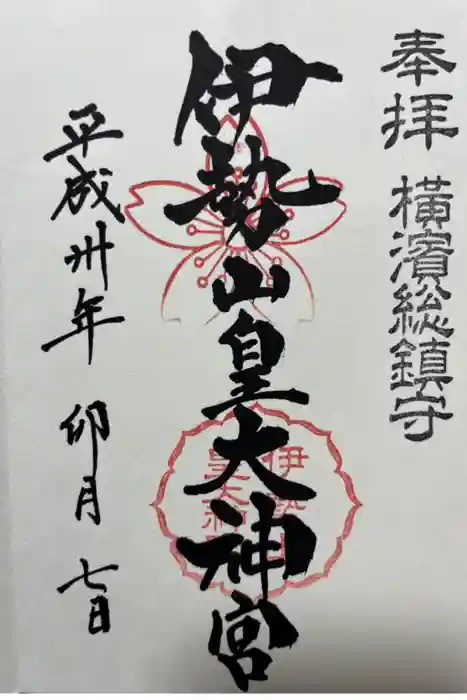 奉拝 横濱総鎮守
伊勢山皇大神宮
伊勢山
皇大神宮
平成卅年 卯月 七日